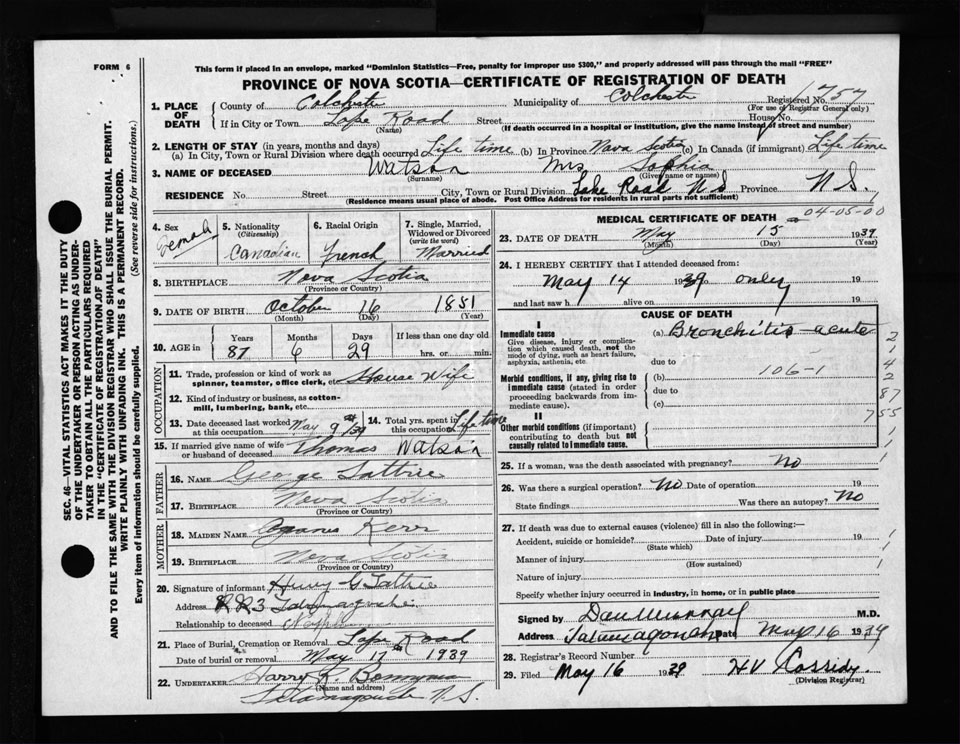 FORM 6
This form if placed in an envelope, marked "Dominion Statistics—Free, penalty for improper use $300," and properly addressed will pass through the mail "FREE"
PROVINCE OF NOVA SCOTIA—CERTIFICATE OF REGISTRATION OF DEATH
SEC. 46—VITAL STATISTICS ACT MAKES IT THE DUTY
OF THE UNDERTAKER OR PERSON ACTING AS UNDER-
TAKER TO OBTAIN ALL THE PARTICULARS REQUIRED
IN THE "CERTIFICATE OF REGISTRATION OF DEATH"
AND TO FILE THE SAME WITH THE DIVISION REGISTRAR WHO SHALL ISSUE THE BURIAL PERMIT.
WRITE PLAINLY WITH UNFADING INK. THIS IS A PERMANENT RECORD.
Every item of information should be carefully supplied. (See reverse side for instructions.)
1. PLACE OF DEATH County of Colchester Municipality of Colchester Registered No. 1757
(For use of Registrar General only)
If in City or Town Road Street House No.
(Name) (If death occurred in a hospital or institution, give the name instead of street and number)
2. LENGTH OF STAY (in years, months and days)
(a) In City, Town or Rural Division where death occurred Life time (b) In Province Nova Scotia (c) In Canada (if immigrant) Life time
3. NAME OF DECEASED Watson Mrs Sophia
(Surname) (Given name or names)
RESIDENCE No. Street City, Town or Rural Division Road N S Province N S.
(Residence means usual place of abode. Post Office address for residents in rural parts not sufficient)
4. Sex Female
5. Nationality (Citizenship) Canadian
6. Racial Origin French
7. Single, Married, Widowed or Divorced (write the word) Married
8. BIRTHPLACE Nova Scotia
(Province or Country)
9. DATE OF BIRTH October 16 1851
(Month) (Day) (Year)
10. AGE in Years Months Days If less than one day
87 6 29 hrs. or min.
OCCUPATION
11. Trade, profession or kind of work as
spinner, teamster, office clerk, etc. House Wife
12. Kind of industry or business, as cotton-
mill, lumbering, bank, etc.
13. Date deceased last worked at this occupation May 9th /39
14. Total yrs. spent in this occupation Life time
15. If married give name of wife or husband of deceased Thomas Watson
FATHER
16. NAME George Tattrie
17. BIRTHPLACE Nova Scotia
(Province or Country)
MOTHER
18. MAIDEN NAME
19. BIRTHPLACE Nova Scotia
(Province or Country)
20. Signature of informant Henry G Tattrie
Address RR3 Tatamagouche
Relationship to deceased Nephew
21. Place of Burial, Cremation or Removal Road
Date of burial or removal May 17th 1939
22. UNDERTAKER Harry R.
(Name and address)
Tatamagouche N.S.
MEDICAL CERTIFICATE OF DEATH 04-05-00
23. DATE OF DEATH May 15 1939
(Month) (Day) (Year)
24. I HEREBY CERTIFY that I attended deceased from:
May 14 1939 only 19
and last saw h alive on 19
CAUSE OF DEATH
I
Immediate cause (a) Bronchitis acute
Give disease, injury or complica-
tion which caused death, not the
mode of dying, such as heart failure,
asphyxia, asthenia, etc. due to
Morbid conditions, if any, giving rise to (b) 106-1
immediate cause (stated in order due to
proceeding backwards from im-
mediate cause). (c)
II
Other morbid conditions (if important)
contributing to death but not
causally related to immediate cause.
2
1
4
2
87
755
25. If a woman, was the death associated with pregnancy? No
26. Was there a surgical operation? No Date of operation 19
State findings Was there an autopsy? No
27. If death was due to external causes (violence) fill in also the following:—
Accident, suicide or homicide? Date of injury 19
(State which)
Manner of injury
(How sustained)
Nature of injury
Specify whether injury occurred in Industry, in home, or in public place
Signed by Dan Murray M.D.
Address Tatamagouche Date May 16 1939
28. Registrar's Record Number
29. Filed May 16 1939 H V Cassidy.
(Division Registrar)